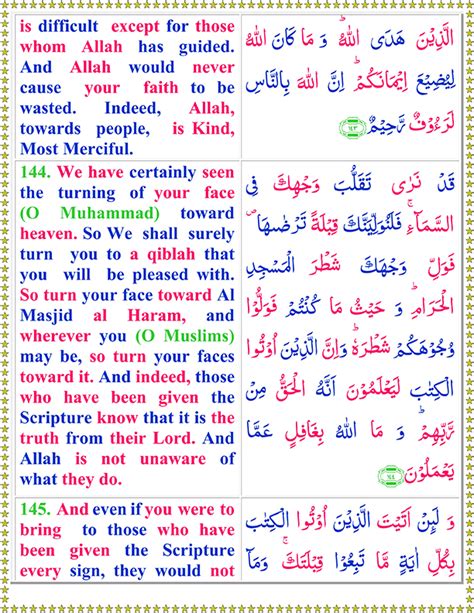 is difficult except for those
whom Allah has guided.
And Allah would never
cause your faith to be
wasted. Indeed, Allah,
towards people, is Kind,
Most Merciful.
الَّذِيْنَ هَدَى اللّٰهُ ؕ وَ مَا كَانَ اللّٰهُ
لِيُضِيْعَ اِيْمَانَكُمْ ؕ اِنَّ اللّٰهَ بِالنَّاسِ
لَرَءُوْفٌ رَّحِيْمٌ ﴿۱۴۳﴾
144. We have certainly seen
the turning of your face
(O Muhammad) toward
heaven. So We shall surely
turn you to a qiblah that
you will be pleased with.
So turn your face toward Al
Masjid al Haram, and
wherever you (O Muslims)
may be, so turn your faces
toward it. And indeed, those
who have been given the
Scripture know that it is the
truth from their Lord. And
Allah is not unaware of
what they do.
قَدْ نَرٰى تَقَلُّبَ وَجْهِكَ فِى
السَّمَآءِ ۚ فَلَنُوَلِّيَنَّكَ قِبْلَةً تَرْضٰىهَا ۪
فَوَلِّ وَجْهَكَ شَطْرَ الْمَسْجِدِ
الْحَرَامِ ؕ وَ حَيْثُ مَا كُنْتُمْ فَوَلُّوْا
وُجُوْهَكُمْ شَطْرَهٗ ؕ وَاِنَّ الَّذِيْنَ اُوْتُوا
الْكِتٰبَ لَيَعْلَمُوْنَ اَنَّهُ الْحَقُّ مِنْ
رَّبِّهِمْ ؕ وَ مَا اللّٰهُ بِغَافِلٍ عَمَّا
يَعْمَلُوْنَ ﴿۱۴۴﴾
145. And even if you were to
bring to those who have
been given the Scripture
every sign, they would not
وَ لَئِنْ اَتَيْتَ الَّذِيْنَ اُوْتُوا الْكِتٰبَ
بِكُلِّ اٰيَةٍ مَّا تَبِعُوْا قِبْلَتَكَ ۚ وَمَاۤ